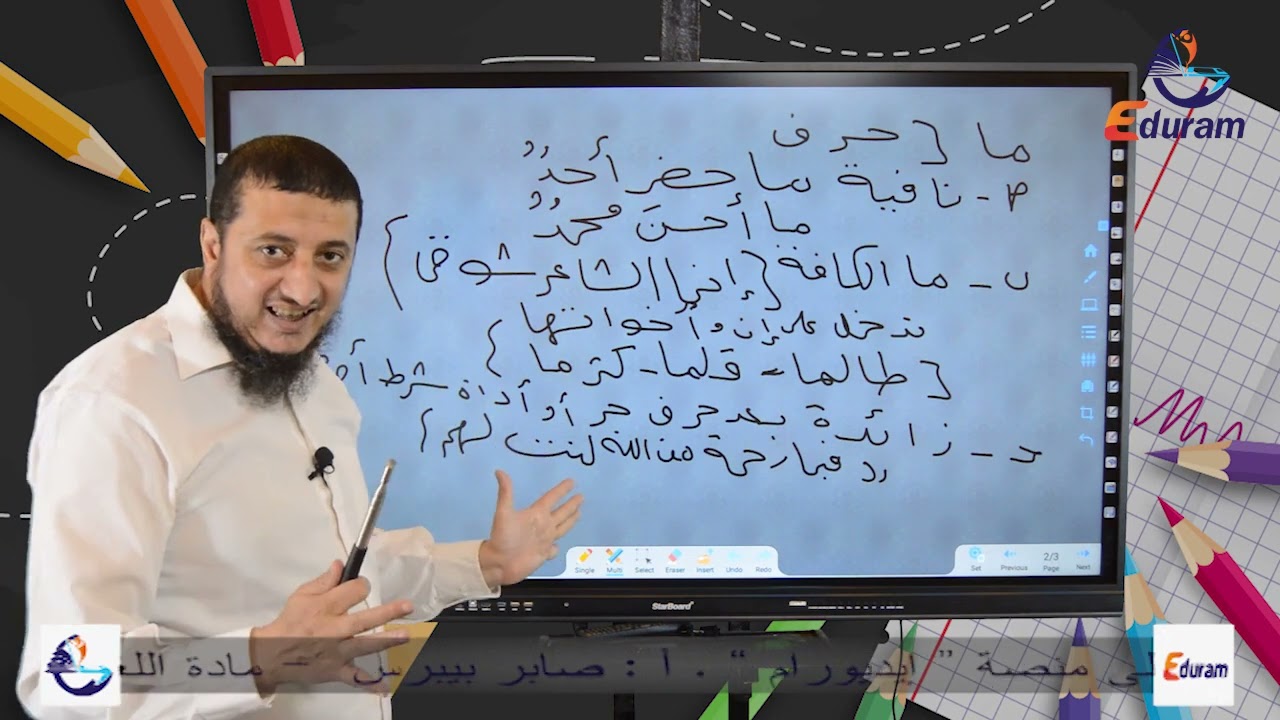 ما { حرف
٢ - نافية ما حضر أحدٌ
ما أحسنَ محمدٌ
ب - ما الكافة { إنما الشاعر شوقى }
تدخل على إن وأخواتها
{ طالما - قلما - كثر ما }
حـ - زائدة بعد حرف جر أو أداة شرط
" فبما رحمة من الله لنت لهم }
Eduram
Single Multi Select Eraser Insert Undo Redo
Set Previous 2/3 Page Next
StarBoard
منصة " إيديورام " . أ : صابر بيبرس - مادة
Eduram